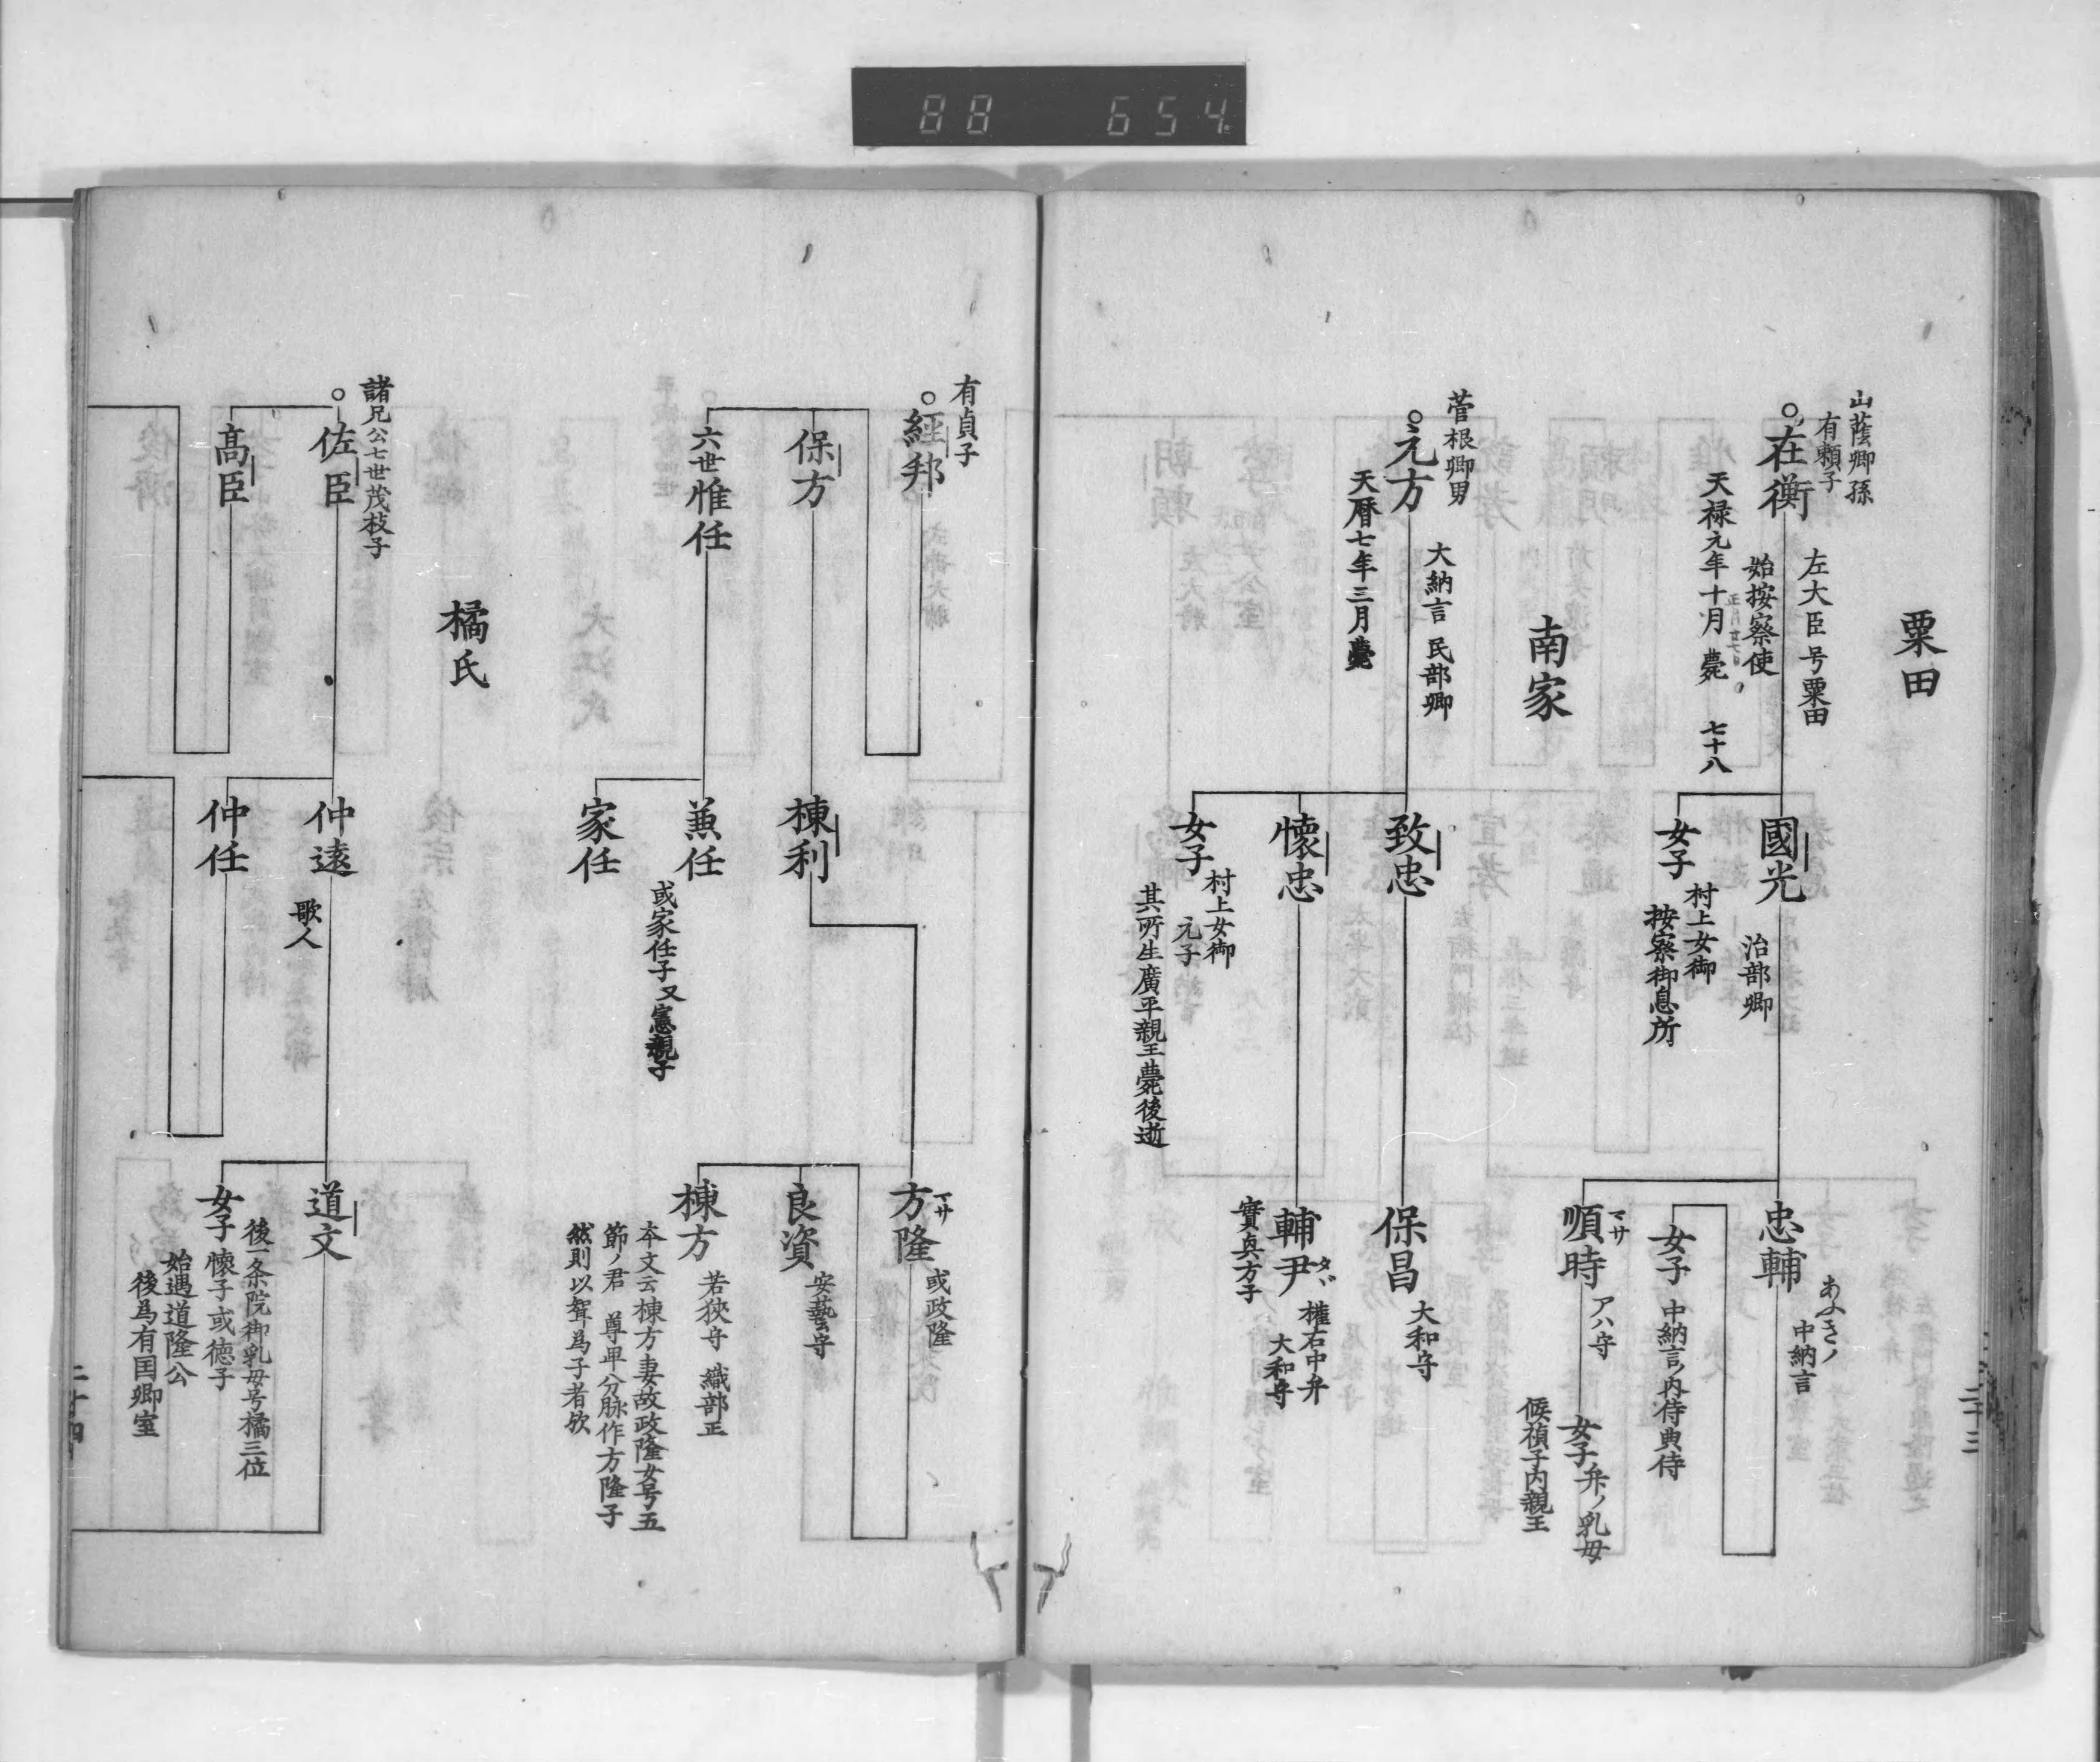 88 654
粟田
山蔭卿孫
有頼子
在衡
左大臣号粟田
始按察使
正月廿七
天禄元年十月薨 七十八
國光
治部卿
女子
村上女御
按察御息所
忠輔
中納言
女子
中納言ノ内侍典侍
順時
マサ
アハ守
女子
弁ノ乳母
候禎子内親王
南家
菅根卿男
元方
大納言 民部卿
天暦七年三月薨
致忠
懐忠
女子
村上女御
元子
其所生廣平親王薨後逝
保昌
大和守
輔尹
タヾ
權右中弁
大和守
實真方子
二十三
有貞子
經邦
保方
六世惟任
棟利
兼任
或家任子又憲親子
家任
方隆
マサ
或政隆
良資
安藝守
棟方
若狹守 織部正
本文云棟方妻故政隆女号五
節ノ君 尊卑分脉作方隆子
然則以聟爲子者欤
橘氏
諸兄公七世茂枝子
佐臣
高臣
仲遠
歌人
仲任
道文
女子
後一条院御乳母号橘三位
懐子或徳子
始遇道隆公
後爲有国卿室
二十四